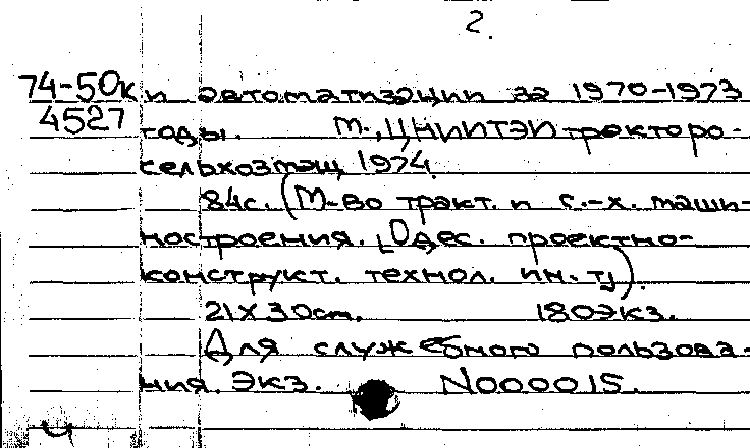 2.
74-50к и автоматизации за 1970-1973
4527 годы. М., ЦНИИТЭИтракторо-
сельхозмаш, 1974.
84с. (М-во тракт. и с.-х. маши-
ностроения. Одес. проектно-
конструкт. технол. ин.-т).
21X30см. 180экз.
Для служебного пользова-
ния. Экз. N000015.